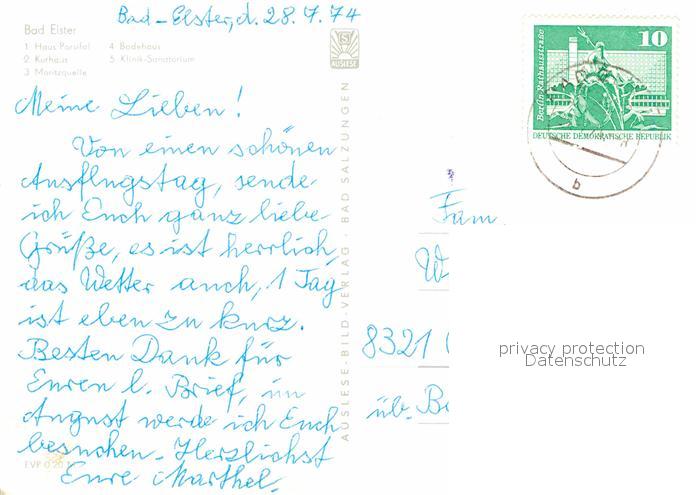 Bad-Elster, d. 28.7.74
Bad Elster
1 Haus Parsifal 4 Badehaus
2 Kurhaus 5 Klinik-Sanatorium
3 Moritzquelle
Meine Lieben!
Von einen schönen
Ausflugstag, sende
ich Euch ganz liebe
Grüße, es ist herrlich,
das Wetter auch, 1 Tag
ist eben zu kurz.
Besten Dank für
Euren l. Brief, im
August werde ich Euch
besuchen. Herzlichst
Eure Marthel.
EVP 0,20
AUSLESE
AUSLESE-BILD-VERLAG · BAD SALZUNGEN
Berlin-Rathausstraße
10
DEUTSCHE DEMOKRATISCHE REPUBLIK
b
Fam.
W
8321
üb. B
privacy protection
Datenschutz